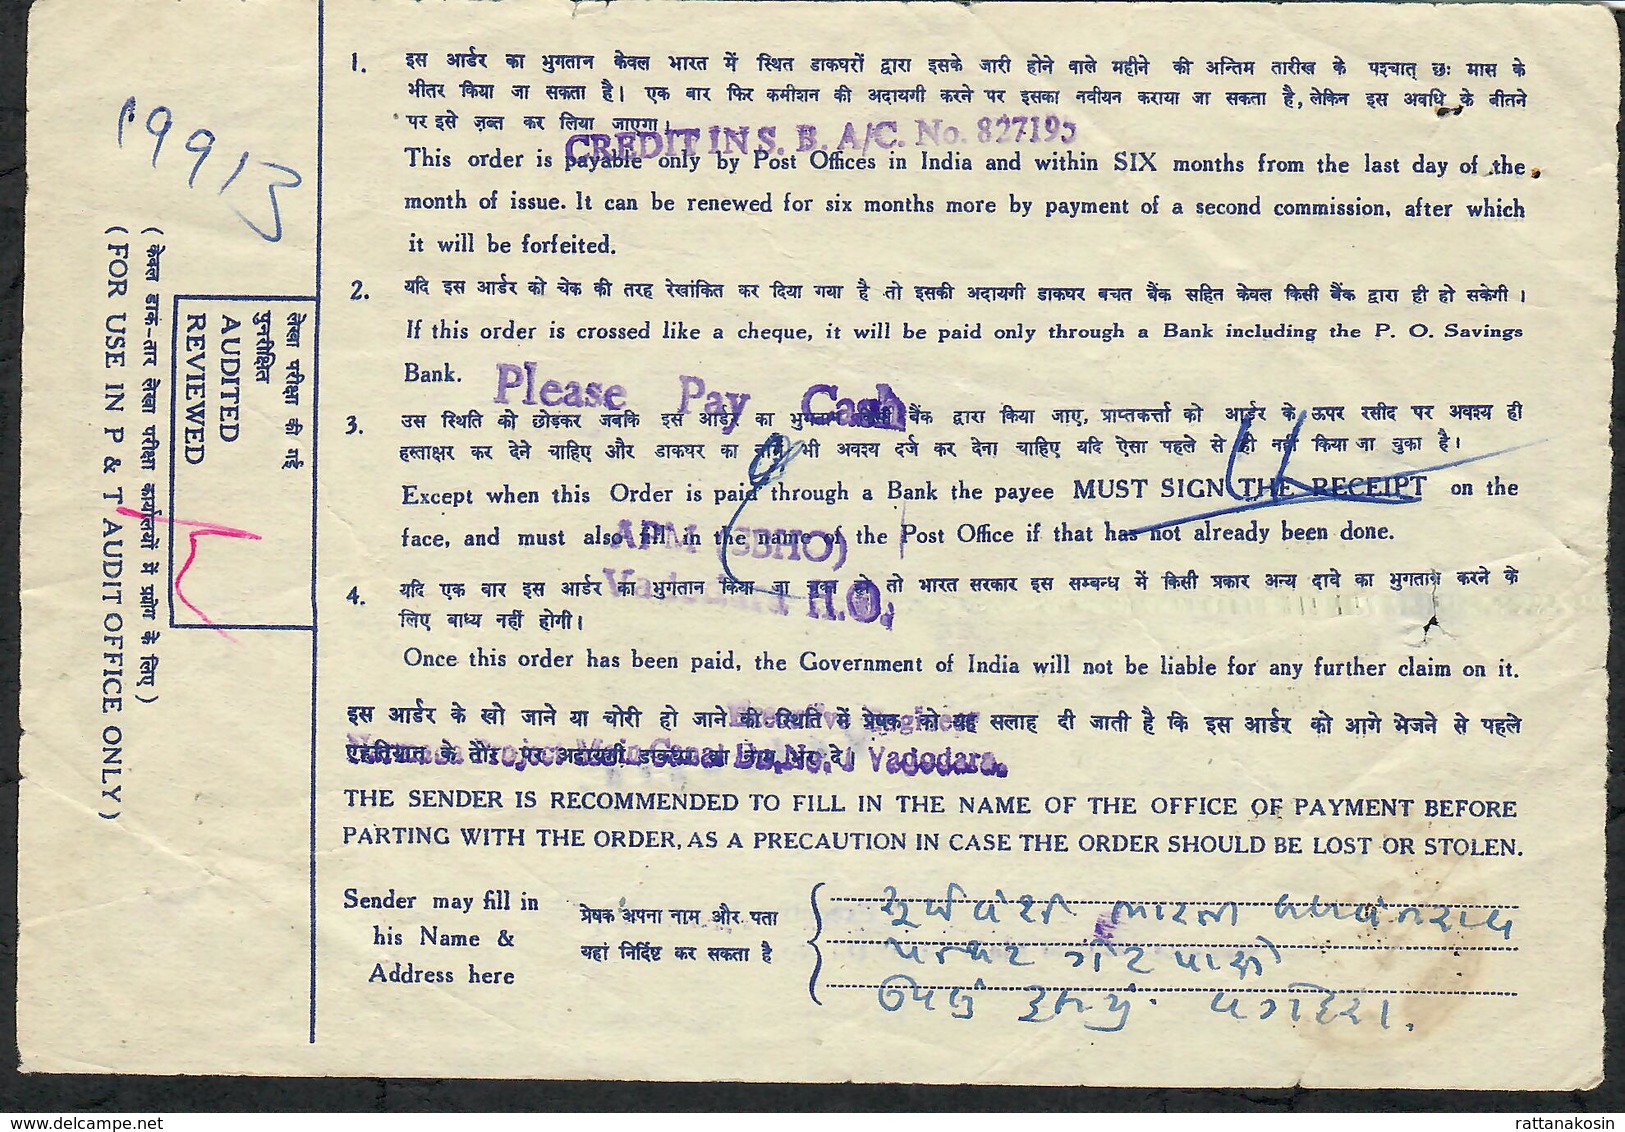 1. इस आर्डर का भुगतान केवल भारत में स्थित डाकघरों द्वारा इसके जारी होने वाले महीने की अन्तिम तारीख के पश्चात् छः मास के
भीतर किया जा सकता है। एक बार फिर कमीशन की अदायगी करने पर इसका नवीयन कराया जा सकता है, लेकिन इस अवधि के बीतने
पर इसे ज़ब्त कर लिया जाएगा।
CREDIT IN S. B. A/C. No. 827195
This order is payable only by Post Offices in India and within SIX months from the last day of the
month of issue. It can be renewed for six months more by payment of a second commission, after which
it will be forfeited.
2. यदि इस आर्डर को चेक की तरह रेखांकित कर दिया गया है तो इसकी अदायगी डाकघर बचत बैंक सहित केवल किसी बैंक द्वारा ही हो सकेगी।
If this order is crossed like a cheque, it will be paid only through a Bank including the P. O. Savings
Bank.
Please Pay Cash
3. उस स्थिति को छोड़कर जबकि इस आर्डर का भुगतान किसी बैंक द्वारा किया जाए, प्राप्तकर्त्ता को आर्डर के ऊपर रसीद पर अवश्य ही
हस्ताक्षर कर देने चाहिए और डाकघर का नाम भी अवश्य दर्ज कर देना चाहिए यदि ऐसा पहले से ही नहीं किया जा चुका है।
Except when this Order is paid through a Bank the payee MUST SIGN THE RECEIPT on the
face, and must also fill in the name of the Post Office if that has not already been done.
APM (SBHO)
Vadodara H.O.
4. यदि एक बार इस आर्डर का भुगतान किया जा चुका हो तो भारत सरकार इस सम्बन्ध में किसी प्रकार अन्य दावे का भुगतान करने के
लिए बाध्य नहीं होगी।
Once this order has been paid, the Government of India will not be liable for any further claim on it.
इस आर्डर के खो जाने या चोरी हो जाने की स्थिति में प्रेषक को यह सलाह दी जाती है कि इस आर्डर को आगे भेजने से पहले
एहतियात के तौर पर अदायगी डाकघर का नाम भर दे।
Executive Engineer
Narmada Project Main Canal Dn. No. 1 Vadodara.
THE SENDER IS RECOMMENDED TO FILL IN THE NAME OF THE OFFICE OF PAYMENT BEFORE
PARTING WITH THE ORDER, AS A PRECAUTION IN CASE THE ORDER SHOULD BE LOST OR STOLEN.
Sender may fill in
his Name &
Address here
प्रेषक अपना नाम और पता
यहां निर्दिष्ट कर सकता है
સૂર્યવંશી ભારતી
પાસે
19913
लेखा परीक्षा की गई
पुनरीक्षित
AUDITED
REVIEWED
(केवल डाक-तार लेखा परीक्षा कार्यालयों में प्रयोग के लिए)
(FOR USE IN P & T AUDIT OFFICE ONLY)
delcampe.net
rattanakosin